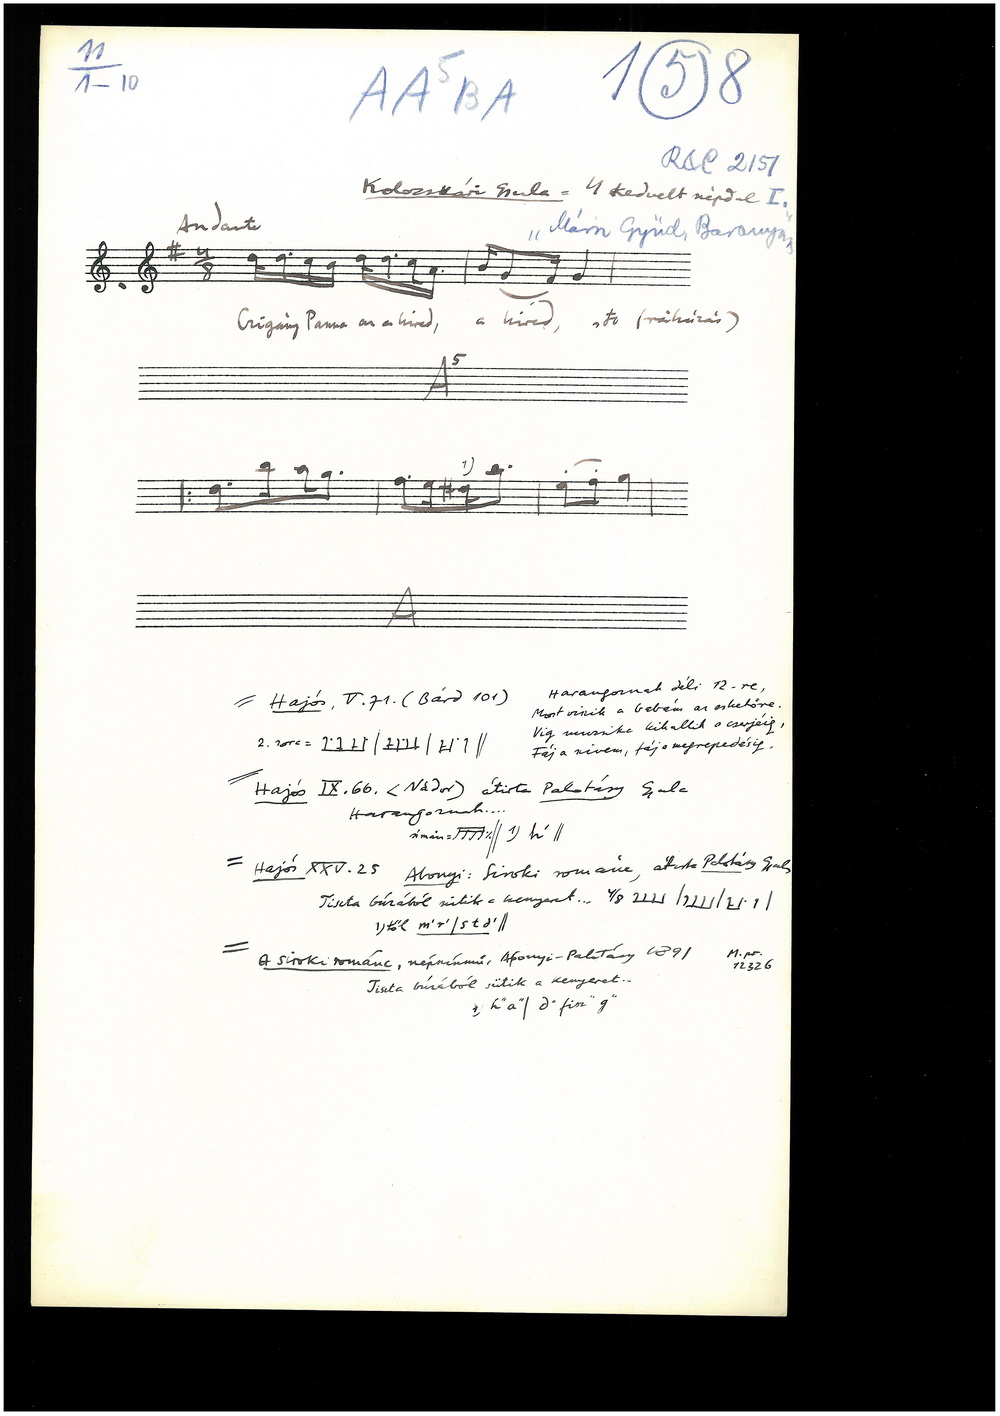 11
1-10
AA⁵BA
1 5 8
4 kedvelt népdal I.
Andante
"Mária Gyűd, Baranya"
4
8
Czigány Panna az a híred, a híred, stb (ráhúzás)
A⁵
1)
A
= Hajós, V. 71. (Bárd 101)
Harangoznak déli 12-re,
Most viszik a babám az esketőre.
Víg muzsika kihallik a
Fáj a szívem, fáj a megrepedésig.
2. sora =
= Hajós IX. 66. (Nádor) átirta Palotásy Gyula
Harangoznak....
1) h' //
= Hajós XXV. 25 Abonyi: Siroki románc, átirta Palotásy Gyula
Tiszta búzából sütik a kenyeret... 4/8
1)től m'r' / s t d' //
= A siroki románc, népszinmű, Abonyi-Palotásy 1891
M.pr.
12326
Tiszta búzából sütik a kenyeret..
1) h" a" / d" fisz" g"